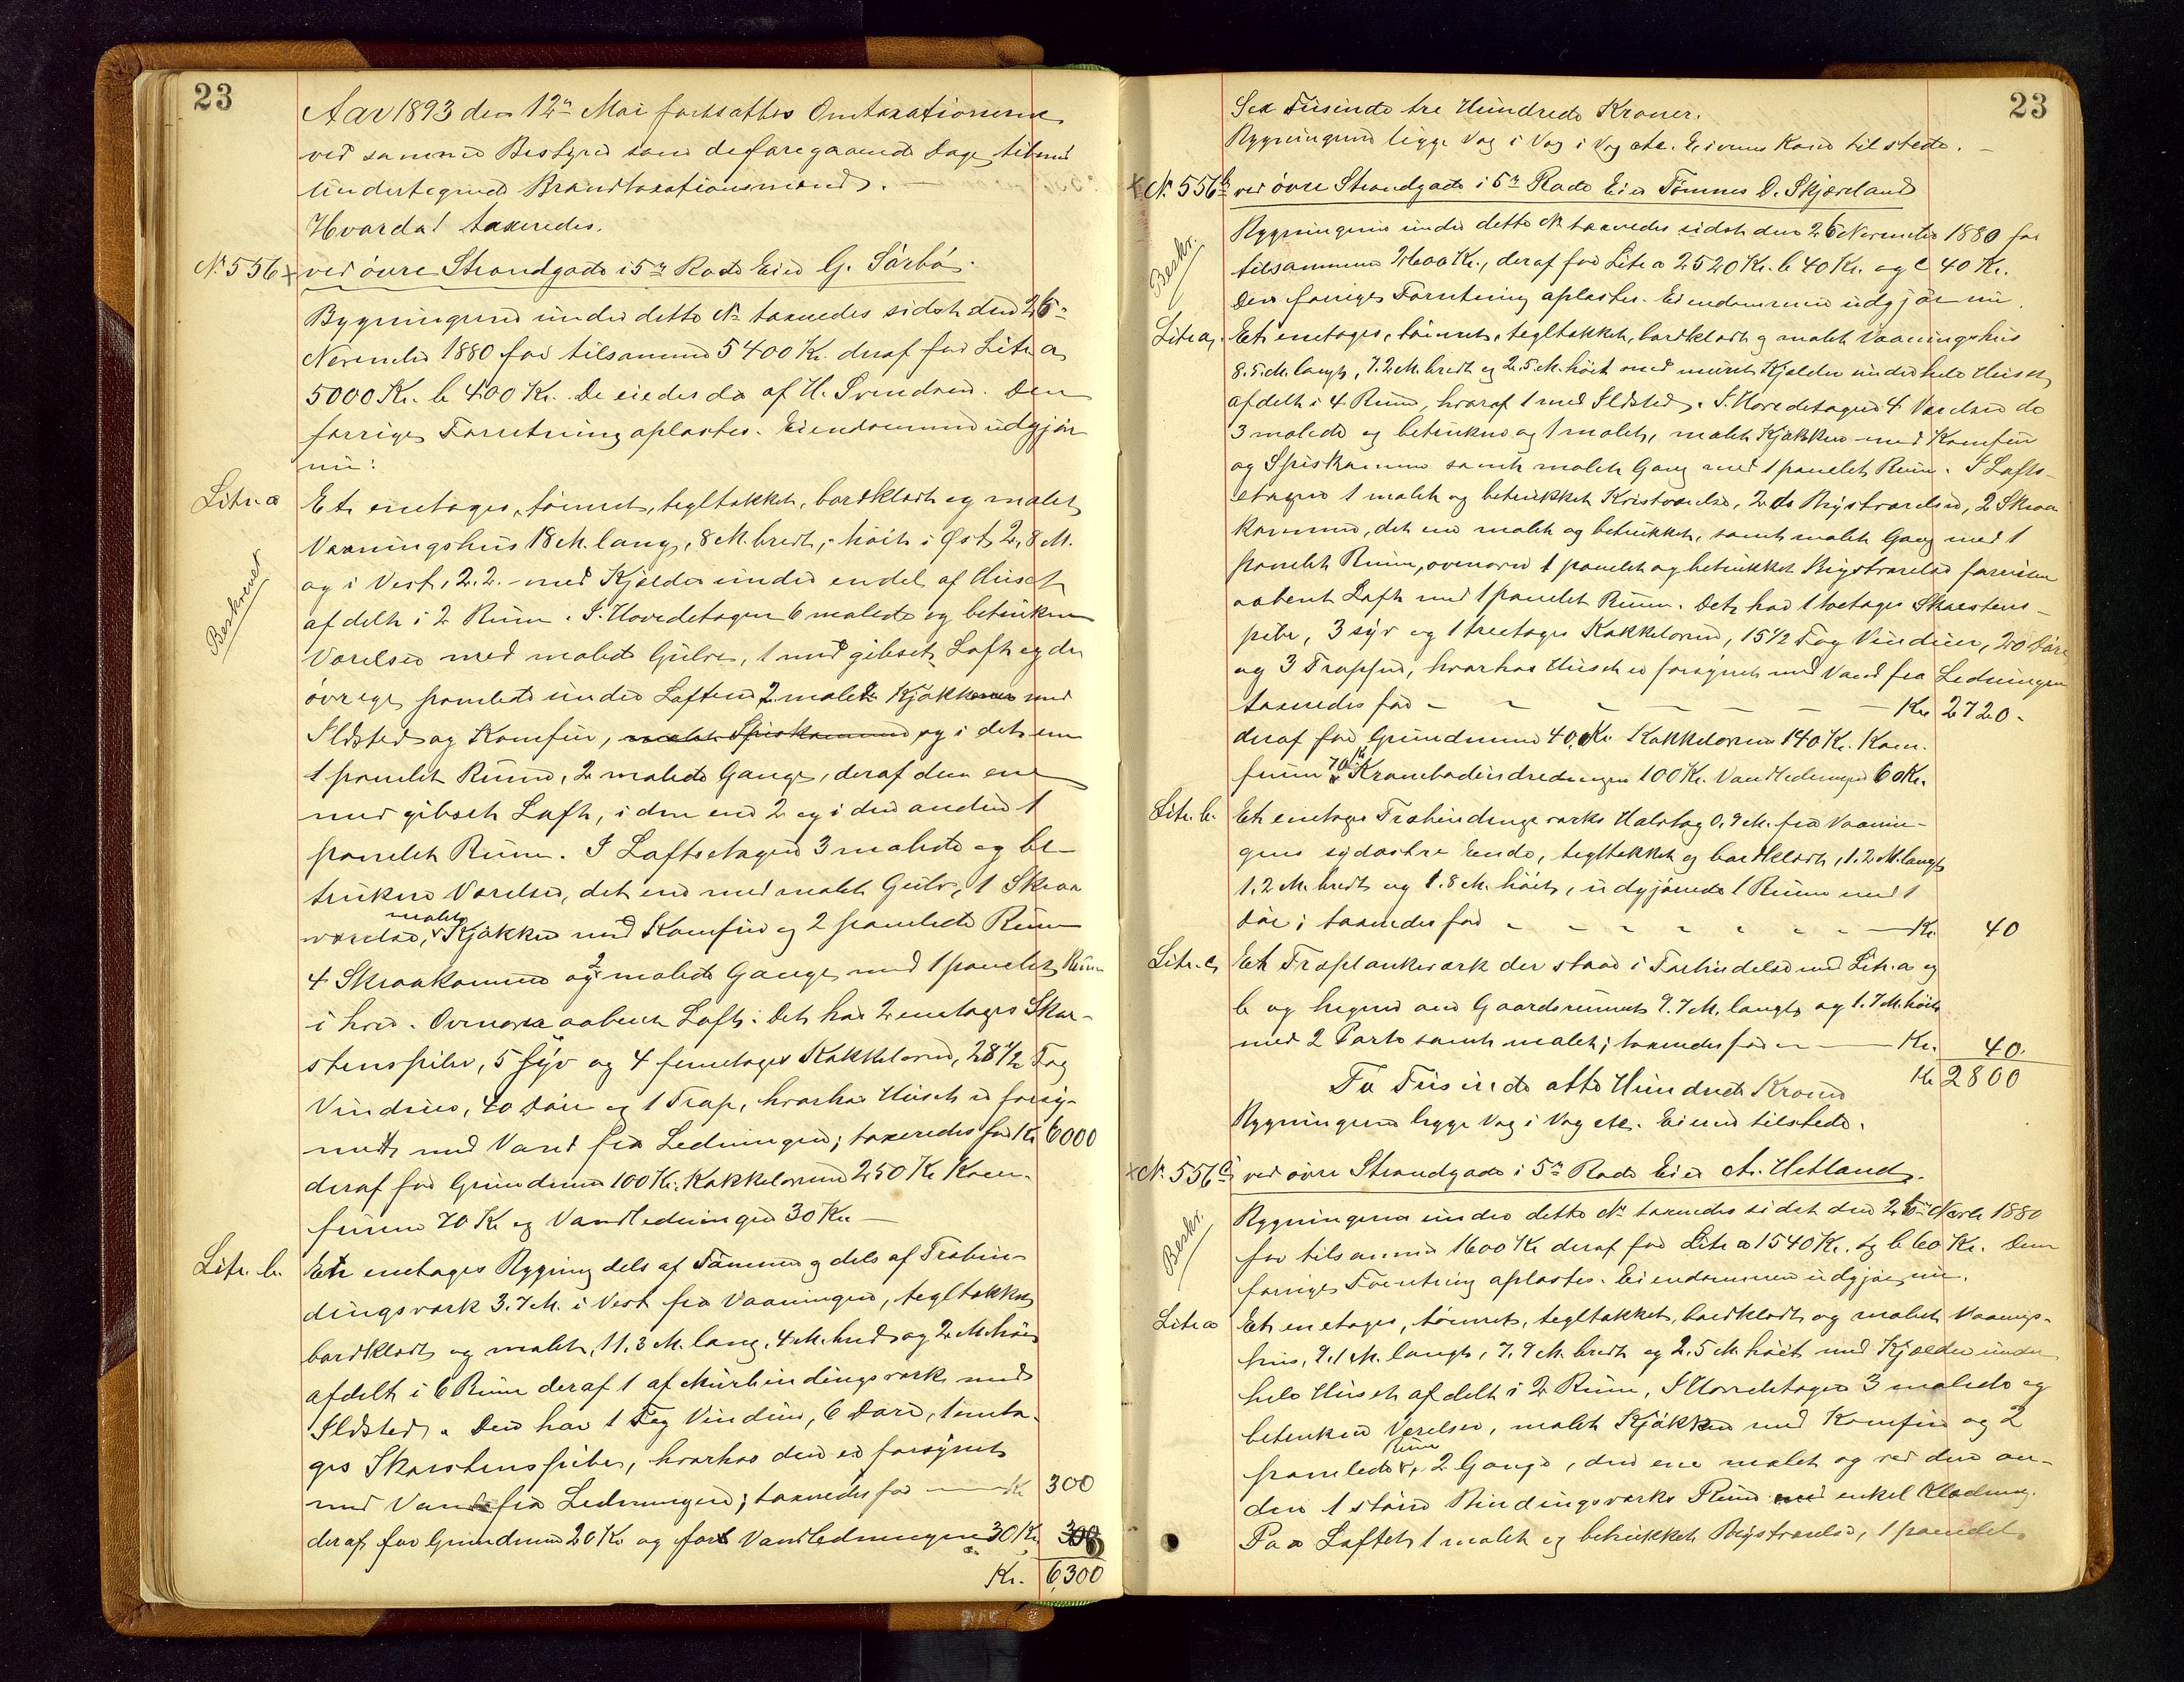 23
Aar 1893 den 12te Mai fortsattes Omtaxationerne
ved samme Bestyrer som de foregaaende Dage, tilmed
undertegnede Brandtaxationsmænd. —
Hvorda! taxeredes.
No 556 x ved övre Strandgade i 5te Rode Eier G. Sörbö.
Bygningerne under dette No taxeredes sidst den 26de
November 1880 for tilsammen 5400 Kr. deraf for Litr. a
5000 Kr. b 400 Kr. De eiedes da af H. Svendsen. Den
forrige Forretning oplæstes. Eiendommen udgjör
nu:
Litr. a Et enetages, tömret, tegltækket, bordklædt og malet
Beskrevet
Vaaningshus 18 M. lang, 8 M. bredt, höit i Øst 2,8 M.
og i Vest, 2.2. med Kjælder under endel af Huset
afdelt i 2 Rum. I Hovedetagen 6 malede og betrukne
Værelser med malede Gulve, 1 med gibset Loft og de
övrige panelede under Loftene 2 malede Kjökkener med
Ildsted og Komfur, malet Spiskammer og i det ene
1 panelet Rum, 2 malede Gange, deraf den ene
med gibset Loft, i den ene 2 og i den anden 1
panelet Rum. I Loftsetagen 3 malede og be-
trukne Værelser, det ene med malet Gulv, 1 Skraa
værelse, malet Kjökken med Komfur og 2 panelede Rum
4 Skraakammer og 2 malede Gange med 1 panelet Rum
i hver. Ovenover aabent Loft. Det har 2 enetages Skor-
stenspiber, 5 Syv og 4 femetages Kakkelovne, 28 1/2 Fag
Vinduer, 40 Döre og 1 Trap, hvorhos Huset er forsy-
net med Vand fra Ledningen; taxeredes for Kr 6000
deraf for Grundmur 100 Kr. Kakkelovne 250 Kr Kom-
furene 70 Kr og Vandledningen 30 Kr —
Litr. b. Et enetages Bygning dels af Tömmer og dels af Træbin-
dingsværk 3.7 M. i Vest fra Vaaningen, tegltækket
bordklædt og malet, 11,3 M. lang, 4 M. bred og 2 M. höi
afdelt i 6 Rum deraf 1 af Murbindingsværk med
Ildsted. Den har 1 Fag Vinduer, 6 Döre, 1 eneta-
ges Skorstenspibe, hvorhos den er forsynet
med Vand fra Ledningen; taxeredes for — Kr 300
deraf for Grundmur 20 Kr og for Vandledningen 30 Kr. 300
Kr. 6,300
23
Sex Tusinde tre Hundrede Kroner.
Bygningerne ligge Væg i Væg i Væg etc. Eierens Kone tilstede. —
x No 556b ved övre Strandgade i 5te Rode Eier Tönnes D. Skjæveland
Beskr.
Bygningerne under dette No taxeredes sidst den 26 November 1880 for
tilsammen 2600 Kr., deraf for Litr. a 2520 Kr. b 40 Kr. og c 40 Kr.
Den forrige Forretning oplæstes. Eiendommen udgjör nu.
Litr. a. Et enetages, tömret, tegltækket, bordklædt og malet Vaaningshus
8.5 M. langt, 7.2 M. bredt og 2.5 M. höit med muret Kjælder under hele Huset
afdelt i 4 Rum, hvoraf 1 med Ildsted. I Hovedetagen 4 Værelser de
3 malede og betrukne og 1 malet, malet Kjökken med Komfur
og Spiskammer samt malet Gang med 1 panelet Rum. I Lofts-
etagen 1 malet og betrukket Kvistværelse, 2 do Brystværelser, 2 Skraa
kammer, det ene malet og betrukket, samt malet Gang med 1
panelet Rum, ovenover 1 panelet og betrukket Brystværelse forresten
aabent Loft med 1 panelet Rum. Det har 1 toetages Skorstens-
pibe, 3 syv og 1 treetages Kakkelovne, 15 1/2 Fag Vinduer, 20 Döre
og 3 Trapper, hvorhos Huset er forsynet med Vand fra Ledningen
taxeredes for — — — — — — — Kr 2720.
deraf for Grundmuren 40 Kr Kakkelovne 140 Kr. Kom-
furen 70 Kr Krambodindredningen 100 Kr. Vandledningen 60 Kr.
Litr. b. Et enetages Træbindingsværks Halvtag 0.9 M. fra Vaanin-
gens sydøstre Ende, tegltækket og bordklædt, 1.2 M. langt
1.2 M. bredt og 1.8 M. höit, udgjörende 1 Rum med 1
Dör; taxeredes for — — — — — — — Kr. 40
Litr. c Et Træplankeværk der staar i Forbindelse med Litr. a og
b og hegner om Gaardsrummet 9.7 M. langt og 1.7 M. höit
med 2 Porte samt malet; taxeredes for — — Kr. 40.
To Tusinde otte Hundrede Kroner Kr 2800
Bygningerne ligge Væg i Væg etc. Eieren tilstede.
x No 556c ved övre Strandgade i 5te Rode Eier A. Hetland.
Beskr.
Bygningerne under dette No taxeredes sidst den 26de Novbr 1880
for tilsammen 1600 Kr deraf for Litr. a 1540 Kr. og b 60 Kr. Den
forrige Forretning oplæstes. Eiendommen udgjör nu.
Litr. a Et enetages, tömret, tegltækket, bordklædt og malet Vaanings-
hus, 9.1 M. langt, 7.9 M. bredt og 2.5 M. höit med Kjælder under
hele Huset afdelt i 2 Rum, I Hovedetagen 3 malede og
betrukne Værelser, malet Kjökken med Komfur og 2
panelede Rum, 2 Gange, den ene malet og ved den an-
den 1 större Bindingsværks Rum med enkel Klædning.
Paa Loftet 1 malet og betrukket Brystværelse, 1 panelet